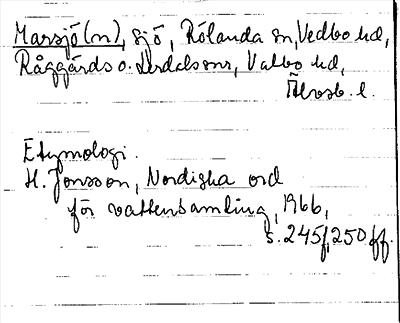 Marsjö(n), sjö, Rölanda sn, Vedbo hd,
Råggärds o. Lerdals snr, Valbo hd,
Älvsb. l.
Etymologi.
H. Jonsson, Nordiska ord
för vattensamling, 1966,
s. 245f, 250 ff.